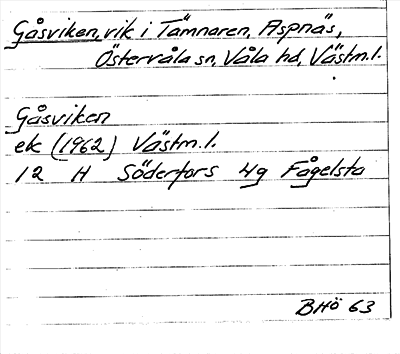 Gåsviken, vik i Tämnaren, Aspnäs,
Östervåla sn, Våla hd, Västm.l.
Gåsviken
ek (1962) Västm.l.
12 H Söderfors 4g Fågelsta
BHö 63